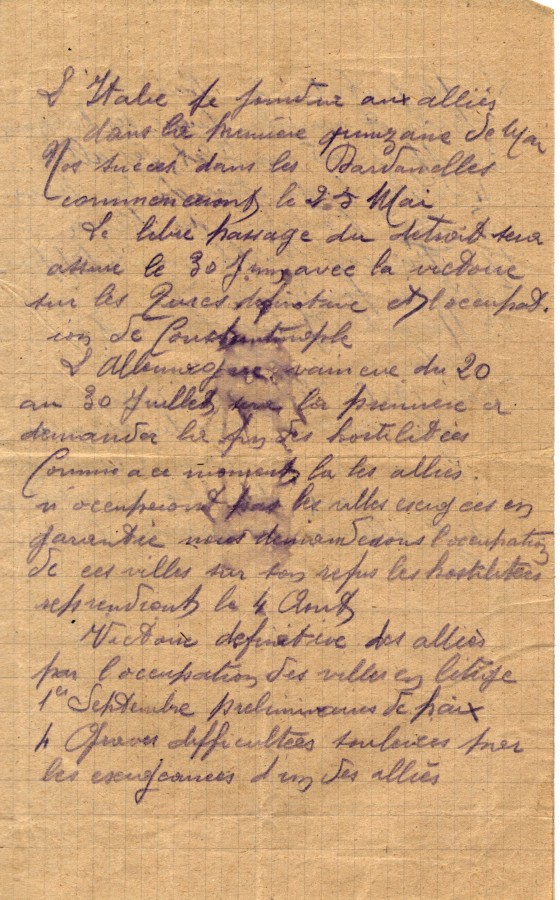 L'Italie se joindra aux alliés
dans la première quinzaine de Mai
Nos succès dans les Dardanelles
commenceront le 25 Mai
Le libre passage du detroit sera
assuré le 30 Juin avec la victoire
sur les Turcs definitive et l'occupat.
ion de Constantinople
L'Allemagne vaincue du 20
au 30 Juillet sera la première a
demander la fin des hostilitées
Comme a ce moment la les alliés
n'occuperont pas les villes exigées en
garantie nous demanderons l'occupation
de ces villes sur son refus les hostilitées
reprendront le 4 Aout
Victoire definitive des alliés
par l'occupation des villes en litige
1er Septembre preliminaires de paix
4 Graves difficultées soulevées par
les exigeances d'un des alliés